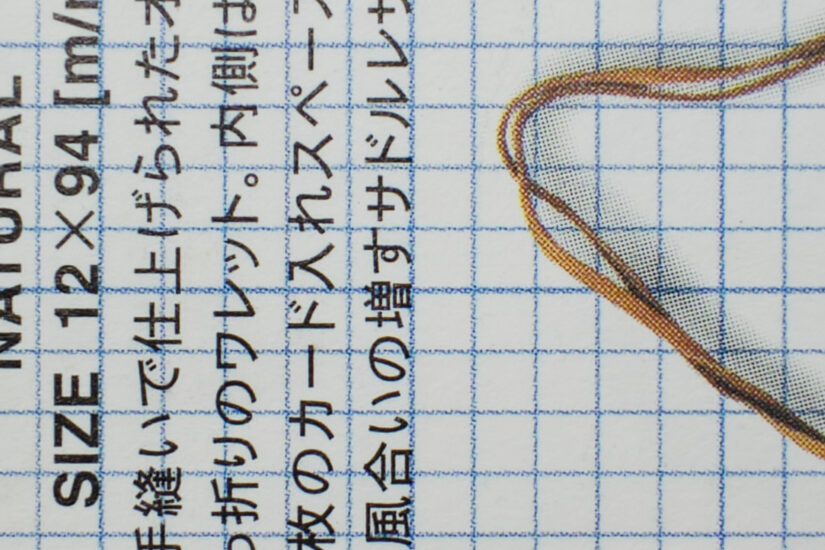 NATURAL
SIZE 12×94 [m/m
手縫いで仕上げられたオ
つ折りのワレット。内側は
枚のカード入れスペース
風合いの増すサドルレザ